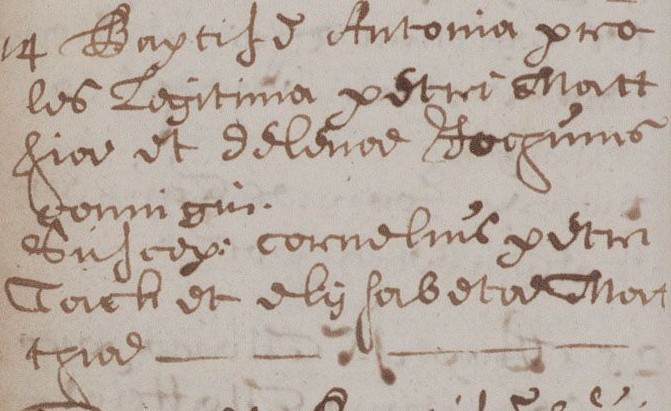 14 Baptisẽ Antonia pro
les Legitima petri Matt
hiae et Helenae Jochums
connigũ.
Suscep: cornelius petri
Tack et elysabetae Mat
thiae